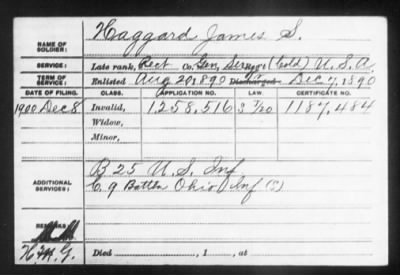 NAME OF SOLDIER: Haggard James S.
SERVICE: Late rank, Rect Co. Gen. Serv. Reg't (Cold) U. S. A.
TERM OF SERVICE: Enlisted Aug 29, 1890 Discharged Dec 7, 1890
DATE OF FILING. CLASS. APPLICATION NO. LAW. CERTIFICATE NO.
1900 Dec 8 Invalid, 1258,516 1187,484
Widow,
Minor,
ADDITIONAL SERVICES: B 25 U. S. Inf
C. 9 Battln Ohio Inf
REMARKS:
Died , 1 , at